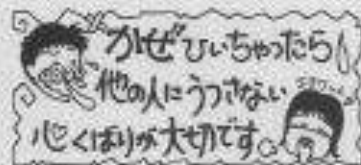 かぜひいちゃったら
他の人にうつさない
心くばりが大切です。